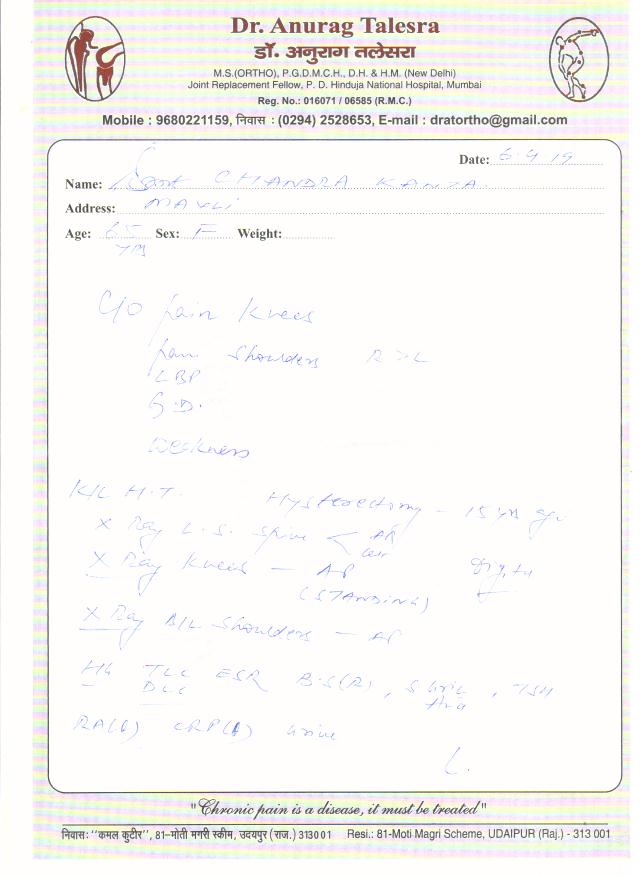 Dr. Anurag Talesra
डॉ. अनुराग तलेसरा
M.S.(ORTHO), P.G.D.M.C.H., D.H. & H.M. (New Delhi)
Joint Replacement Fellow, P. D. Hinduja National Hospital, Mumbai
Reg. No.: 016071 / 06585 (R.M.C.)
Mobile : 9680221159, निवास : (0294) 2528653, E-mail : dratortho@gmail.com
Date: 6.4.19
Name: CHANDRA KANTA
Address: MAVLI
Age: 65 YRS Sex: F Weight:
C/O Pain Knees
Pain Shoulders R > L
LBP
G.D.
Weakness
K/C H.T. Hysterectomy - 15 YRS ago
X Ray L.S. Spine < AP
Lat
X Ray Knees - AP
(STANDING)
X Ray B/L Shoulders - AP
Hb TLC ESR B.S(R), S. Uric, TSH
DLC
RA(t) CRP(t) Urine
"Chronic pain is a disease, it must be treated"
निवास: "कमल कुटीर", 81-मोती मगरी स्कीम, उदयपुर (राज.) 313001 Resi.: 81-Moti Magri Scheme, UDAIPUR (Raj.) - 313 001